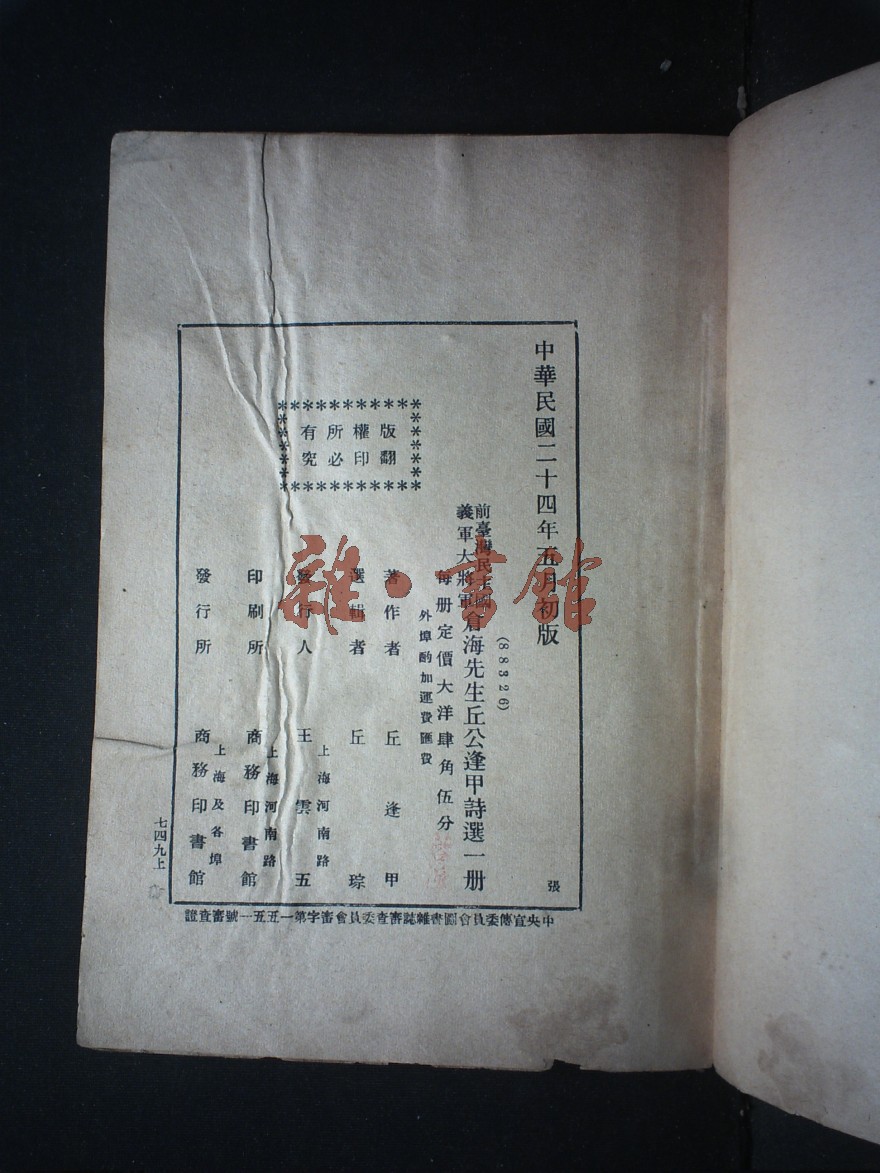 中華民國二十四年五月初版
(88326)
前臺灣民主國
義軍大將軍
倉海先生丘公逢甲詩選一册
每册定價大洋肆角伍分
外埠酌加運費匯費
版權所有
翻印必究
著作者 丘逢甲
選輯者 丘琮
發行人 王雲五
上海河南路
印刷所 商務印書館
上海河南路
發行所 商務印書館
上海及各埠
張
七四九上
中央宣傳委員會圖書雜誌審查委員會審字第一五五一號審查證
雜·書館